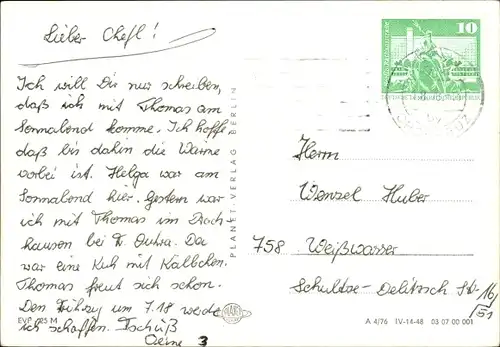 Lieber Chefl!
Ich will Dir nur schreiben,
daß ich mit Thomas am
Sonnabend komme. Ich hoffe
daß bis dahin die Wärme
vorbei ist. Helga war am
Sonnabend hier. Gestern war
ich mit Thomas im
hausen bei Da
war eine Kuh mit Kälbchen.
Thomas freut sich schon.
Den Frühzug um 7.18 werde
ich schaffen. Tschüß
3
EVP
PLANET-VERLAG BERLIN
10
Herrn
Wenzel Huber
758 Weißwasser
Schultze-Delitzsch Str. 16
/51
A 4/76 IV-14-48 03 07 00 001